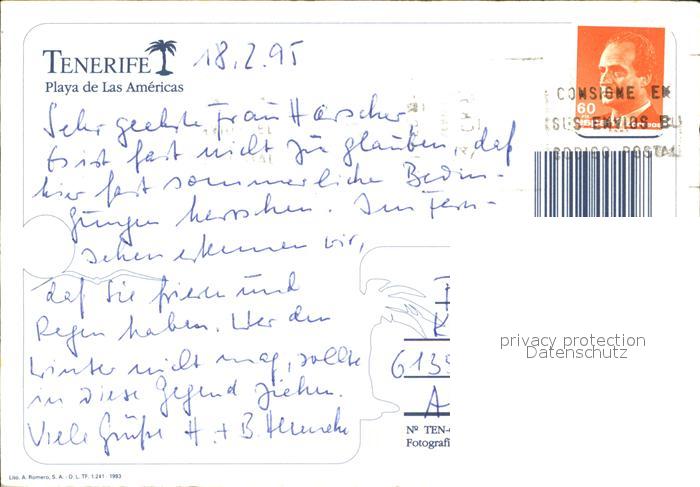 TENERIFE
18.2.95
Playa de Las Américas
Sehr geehrte Frau Harscher
Es ist fast nicht zu glauben, daß
hier fast sommerliche Bedin-
gungen herrschen. Im Fern-
sehen erkennen wir,
daß Sie frieren und
Regen haben. Wer den
Winter nicht mag, sollte
in diese Gegend ziehen.
Viele Grüße H. + B.
60
CONSIGNE EN
SUS ENVIOS EL
CODIGO POSTAL
privacy protection
Datenschutz
K
6139
A
Nº TEN-
Fotografí
Lito. A. Romero, S. A. - D. L. TF. 1.241 - 1993